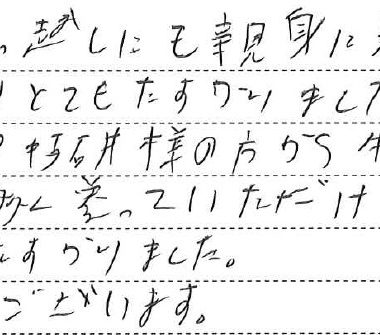 っ越しにも親身に
りとてもたすかりました
石井様の方から
登っていただけ
たすかりました。
ございます。